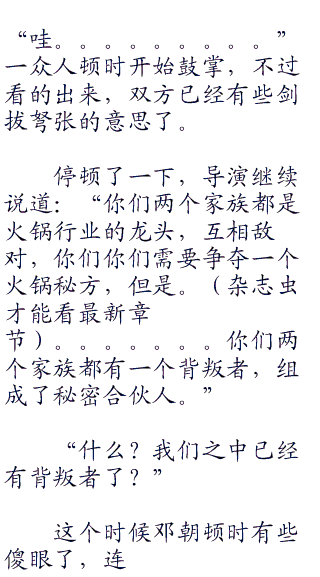 “哇。。。。。。。。。”
一众人顿时开始鼓掌，不过
看的出来，双方已经有些剑
拔弩张的意思了。
停顿了一下，导演继续
说道：“你们两个家族都是
火锅行业的龙头，互相敌
对，你们你们需要争夺一个
火锅秘方，但是。（杂志虫
才能看最新章
节）。。。。。。。你们两
个家族都有一个背叛者，组
成了秘密合伙人。”
“什么？我们之中已经
有背叛者了？”
这个时候邓朝顿时有些
傻眼了，连